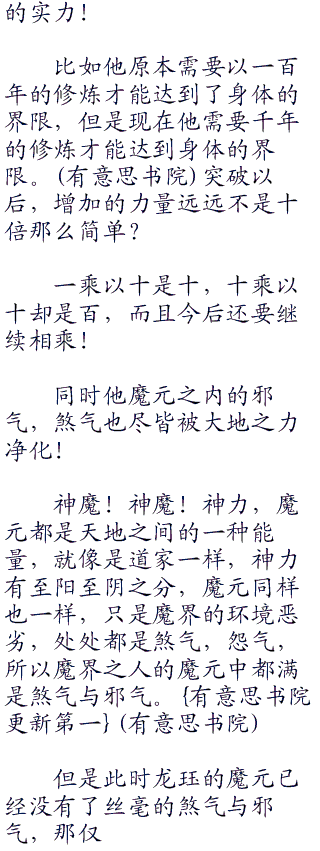 的实力！
比如他原本需要以一百
年的修炼才能达到了身体的
界限，但是现在他需要千年
的修炼才能达到身体的界
限。(有意思书院)突破以
后，增加的力量远远不是十
倍那么简单？
一乘以十是十，十乘以
十却是百，而且今后还要继
续相乘！
同时他魔元之内的邪
气，煞气也尽皆被大地之力
净化！
神魔！神魔！神力，魔
元都是天地之间的一种能
量，就像是道家一样，神力
有至阳至阴之分，魔元同样
也一样，只是魔界的环境恶
劣，处处都是煞气，怨气，
所以魔界之人的魔元中都满
是煞气与邪气。{有意思书院
更新第一}(有意思书院)
但是此时龙珏的魔元已
经没有了丝毫的煞气与邪
气，那仅